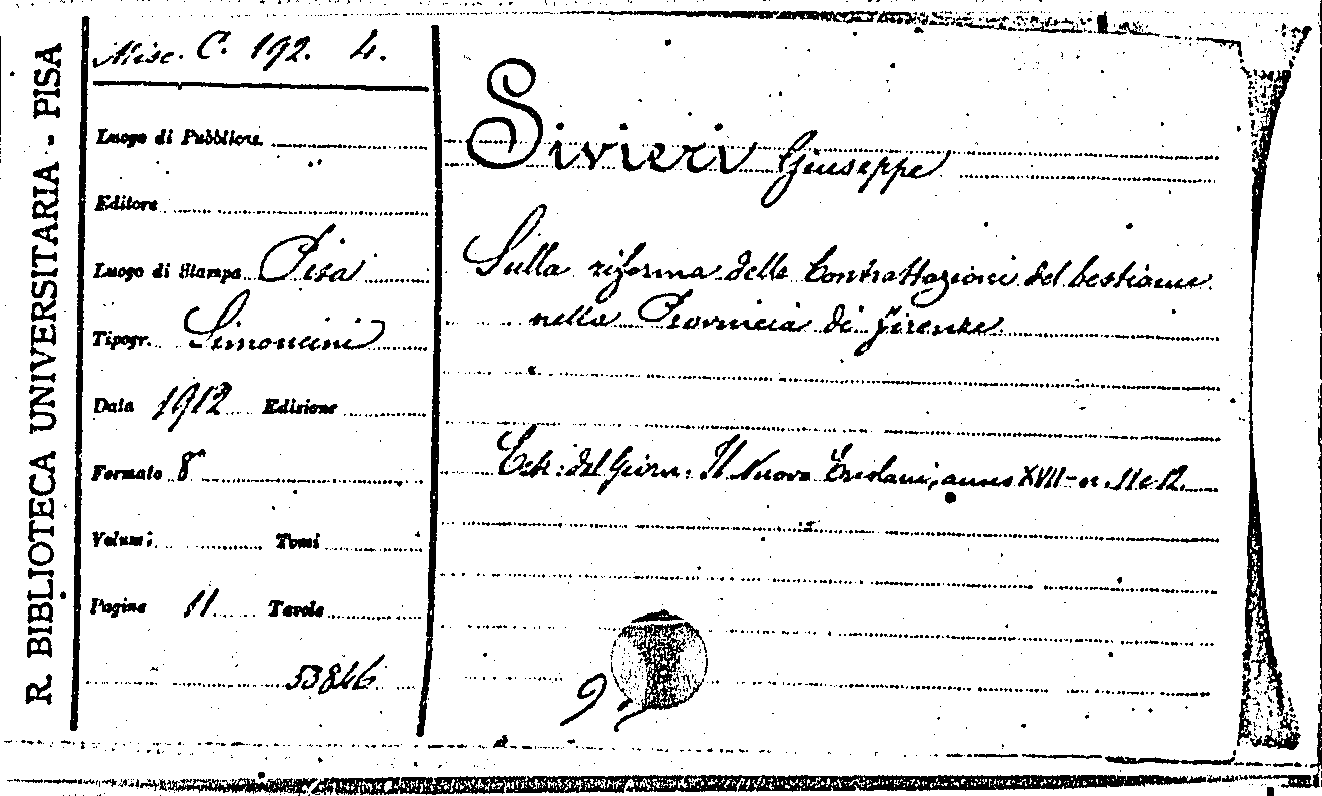 R. BIBLIOTECA UNIVERSITARIA - PISA
Misc. C. 192. 4.
Luogo di Pubblicaz.
Editore
Luogo di Stampa Pisa
Tipogr. Simoncini
Data 1912 Edizione
Formato 8°
Volumi Tomi
Pagine 11 Tavole
53846
Sivieri Giuseppe
Sulla riforma delle Contrattazioni del bestiame
nella Provincia di Firenze
Estr: del Giorn: Il Nuovo Ercolani, anno XVII - n. 11 e 12.
9